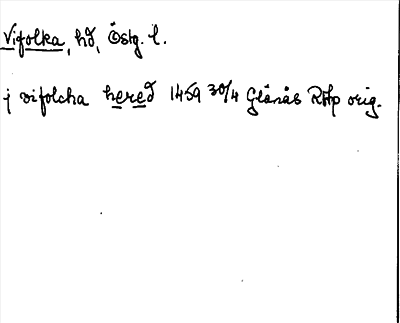 Vifolka, hd, Östg. l.
j vifolcha hered 1459 30/4 Glänås RAp orig.